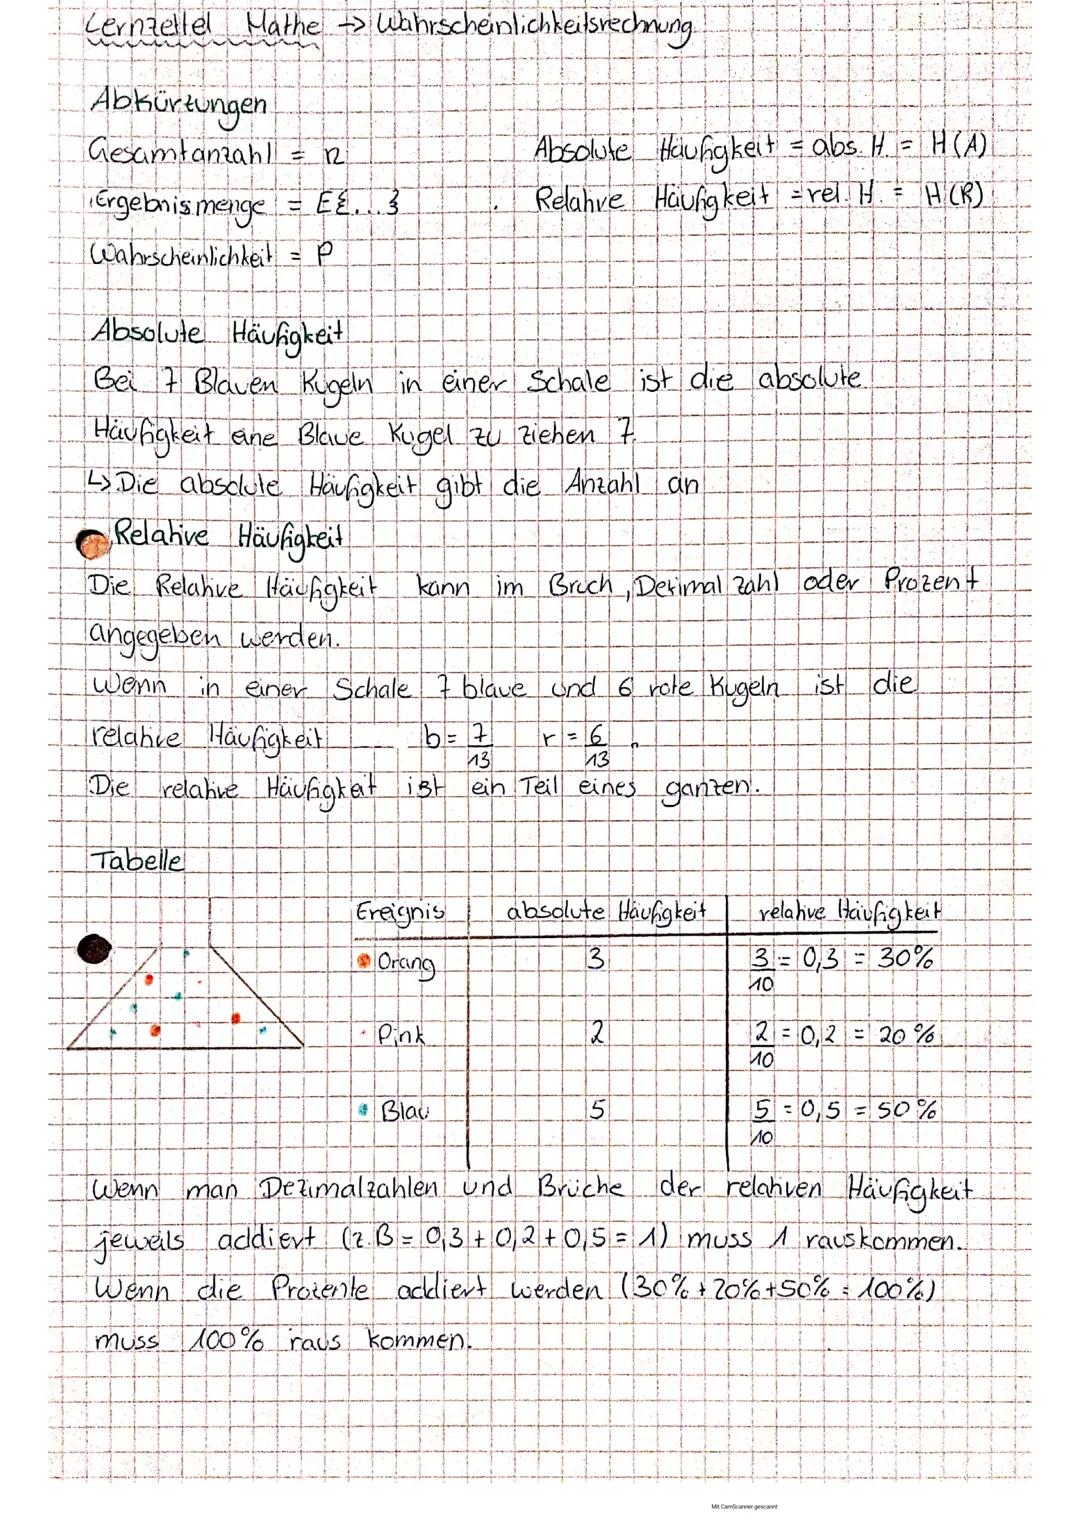 Lernzettel Mathe → Wahrscheinlichkeitsrechnung
Abkürzungen
Gesamtanzahl = n
Absolute Häufigkeit = abs. H. = H(A)
Ergebnismenge = E{...}
Relative Häufigkeit = rel. H. = H(R)
Wahrscheinlichkeit = P
Absolute Häufigkeit
Bei 7 Blauen Kugeln in einer Schale ist die absolute
Häufigkeit eine Blaue Kugel zu ziehen 7.
↳ Die absolute Häufigkeit gibt die Anzahl an
Relative Häufigkeit
Die Relative Häufigkeit kann im Bruch, Dezimal zahl oder Prozent
angegeben werden.
Wenn in einer Schale 7 blaue und 6 rote Kugeln ist die
relative Häufigkeit b = 7/13 r = 6/13
Die relative Häufigkeit ist ein Teil eines ganzen.
Tabelle
Ereignis absolute Häufigkeit relative Häufigkeit
Orang 3 3/10 = 0,3 = 30%
Pink 2 2/10 = 0,2 = 20%
Blau 5 5/10 = 0,5 = 50%
Wenn man Dezimalzahlen und Brüche der relativen Häufigkeit
jeweils addiert (z.B = 0,3 + 0,2 + 0,5 = 1) muss 1 rauskommen.
Wenn die Prozente addiert werden (30% + 20% + 50% = 100%)
muss 100% raus kommen.
Mit CamScanner gescannt